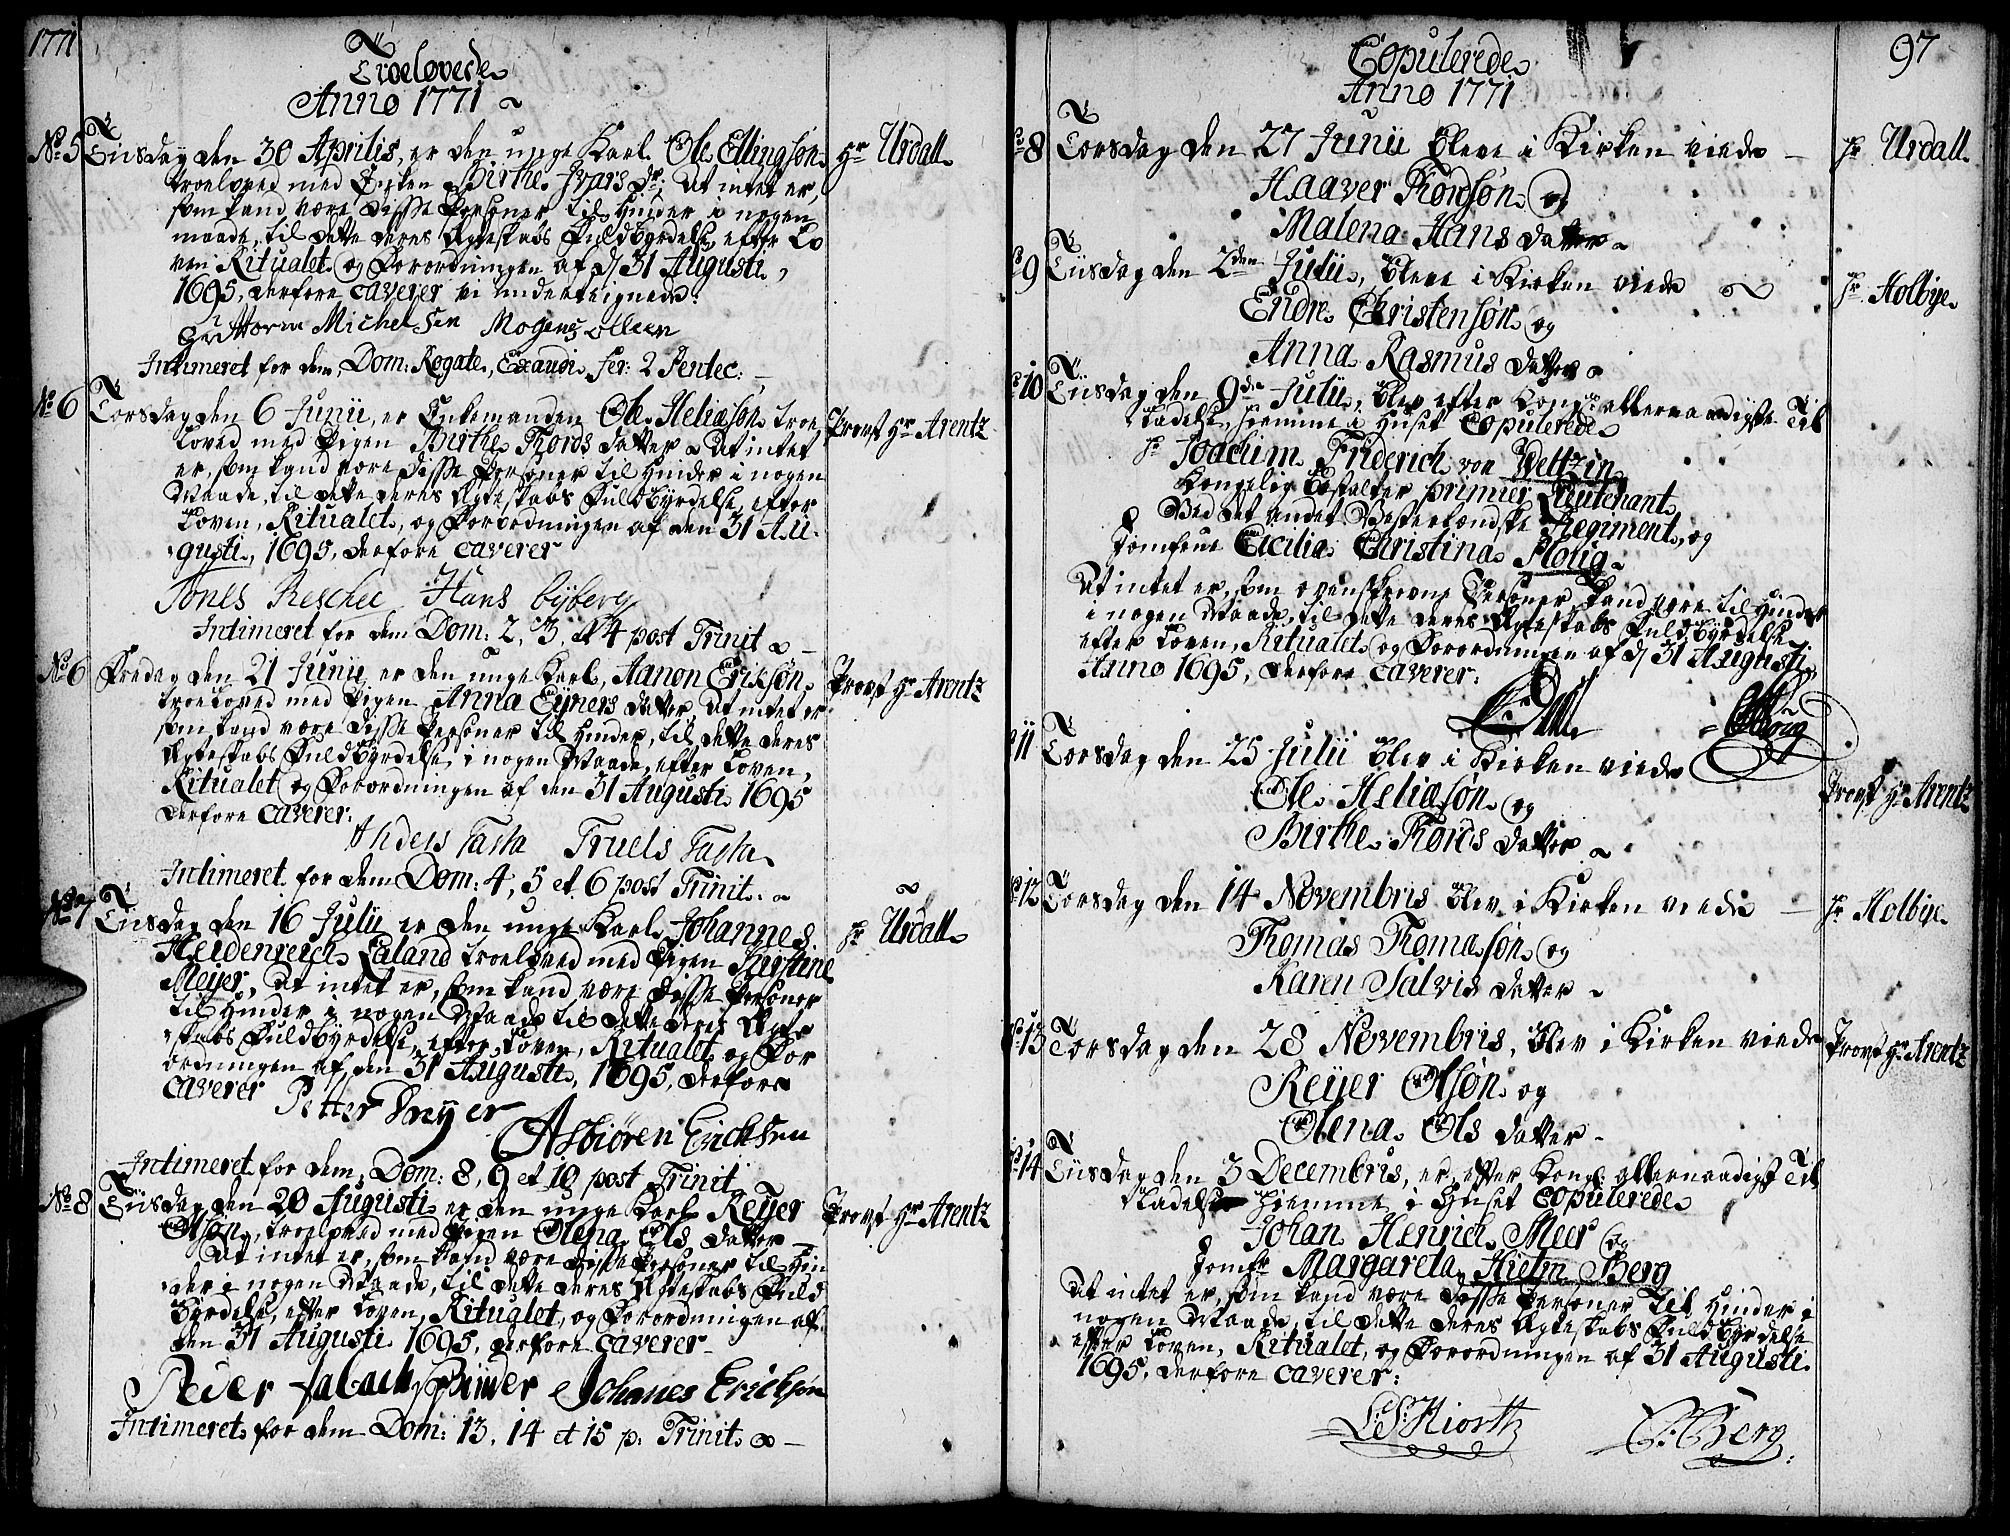 1771
Troelovede
Anno 1771
No 5 Tiisdag den 30 Aprilis, er den unge Karl Ole Ellingsøn Hr Urdall
troelowed med Pigen Birthe Ivars dr. At intet er,
som kand være disse Personer til Hinder i nogen
maade, til dette deres Ægteskabs Fuldbyrdelse efter Lo
ven Ritualet og Forordningen af d 31 Augusti
1695, derfore caverer vi undertegnede:
Guttorm Michelsen Mogens olsen
Intimeret for dem, Dom: Rogate, Exaudi, fer: 2 Pentec:
No 6 Torsdag den 6 Junii, er Enkemanden Ole Heliasøn troe Provst Hr Arentz
lowed med Pigen Birthe Thords datter At intet
er, som kand være disse Personer til Hinder i nogen
Maade, til dette deres Ægteskabs Fuldbyrdelse, efter
Loven, Ritualet, og Forordningen af den 31 Au-
gusti, 1695, derfore caverer
Tønes Reschee Hans byberg
Intimeret for dem Dom: 2, 3, et 4 post Trinit
No 6 Fredag den 21 Junii er den unge Karl, Aanon Ericksøn Provst Hr Arentz
troelowed med Pigen Anna Eyners datter At intet er
som kand være disse Personer til Hinder, til dette deres
Ægteskabs Fuldbyrdelse, i nogen Maade, efter Loven,
Ritualet og Forordningen af den 31 Augusti 1695
derfore caverer:
Anders Tasta Truels Tasta
Intimeret for dem Dom: 4, 5 et 6 post Trinit:
No 7 Tiisdag den 16 Julii er den unge Karl Johannes Hr Urdall
Heidenreich Laland troelowed med Pigen Kirstine
Meijer, At intet er, som kand være disse Personer
til Hinder i nogen Maade til dette deres Ægte
skabs Fuldbyrdelse, efter Loven, Ritualet og For
ordningen af den 31 Augusti, 1695, derfore
caverer Petter Meyer
Asbiören Ericksen
Intimeret for dem, Dom: 8, 9 et 10 post Trinit
No 8 Tiisdag den 20 Augusti er den unge Karl Reijer Provst Hr Arentz
Olsøn, troelowed med Pigen Olena Ols datter
At intet er, som kand være disse Personer til Hin
der i nogen Maade, til dette deres Ægteskabs Fuld
byrdelse, efter Loven, Ritualet, og Forordningen af
den 31 Augusti 1695, derfore caverer
Reier Johanes Ericksøn
Intimeret for dem Dom: 13, 14 et 15 p: Trinit
97
Copulerede
Anno 1771
No 8 Torsdag den 27 Junii bleve i Kirken viede Hr Urdall
Haaver Thordsøn og
Malena Hans datter
No 9 Tiisdag den 2den Julii, bleve i Kirken viede Hr Holbye
Endre Christensøn og
Anna Rasmus datter
No 10 Tiisdag den 9de Julii, blev efter Kongl: allernaadigste Til
ladelse, hiemme i Huset Copulerede
Hr Joachim Friderich von Weltzin
Kongelig Bestalter primier Lieutenant
Ved det andet Vesterlændske Regiment, og
Jomfrue Cecilia Christina Monig
At intet er, som ovenskrevne Personer kand være til Hinder
i nogen Maade, til dette deres Ægteskabs Fuldbyrdelse
efter Loven, Ritualet og Forordningen af d 31 Augusti
Anno 1695, derfore caverer:
No 11 Torsdag den 25 Julii blev i Kirken viede
Ole Heliasøn og Provst Hr Arentz
Birthe Thords datter
No 12 Torsdag den 14 Novembris blev i Kirken viede Hr Holbye
Thomas Thomasøn og
Karen Salvis datter
No 13 Torsdag den 28 Novembris, blev i Kirken viede Provst Hr Arentz
Reijer Olsøn og
Olena Ols datter
No 14 Tiisdag den 3 Decembris, er, efter Kongl: allernaadigst Til
ladelse hiemme i Huset Copulerede
Johan Henrich Meer og
Jomfr Margareta Hielm Berg
At intet er, som kand være disse Personer til Hinder i
nogen Maade, til dette deres Ægteskabs Fuldbyrdelse
efter Loven, Ritualet, og Forordningen af 31 Augusti
1695, derfore caverer:
LS Hiorth Berg